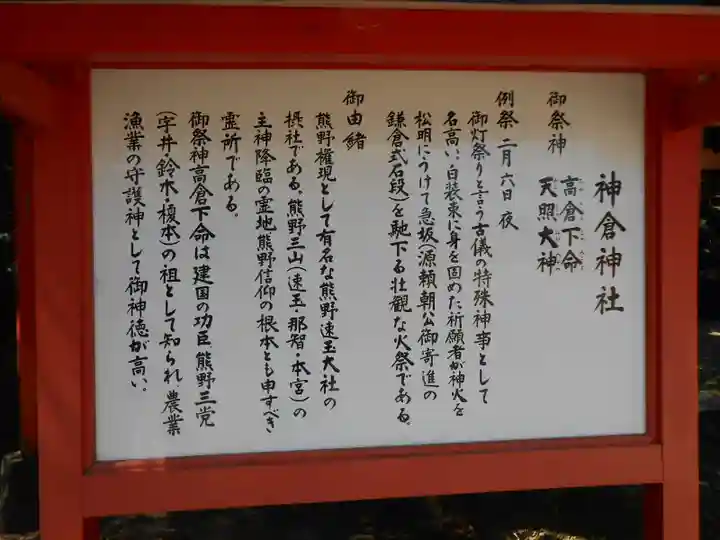 神倉神社
御祭神 高倉下命
天照大神
例祭 二月六日 夜
御灯祭りと言う古儀の特殊神事として
名高い、白装束に身を固めた祈願者が神火を
松明にうけて急坂(源頼朝公御寄進の
鎌倉式石段)を馳下る壮観な火祭である。
御由緒
熊野権現として有名な熊野速玉大社の
摂社である。熊野三山(速玉・那智・本宮)の
主神降臨の霊地熊野信仰の根本とも申すべき
霊所である。
御祭神高倉下命は建国の功臣、熊野三党
(宇井・鈴木・榎本)の祖として知られ、農業
漁業の守護神として御神徳が高い。